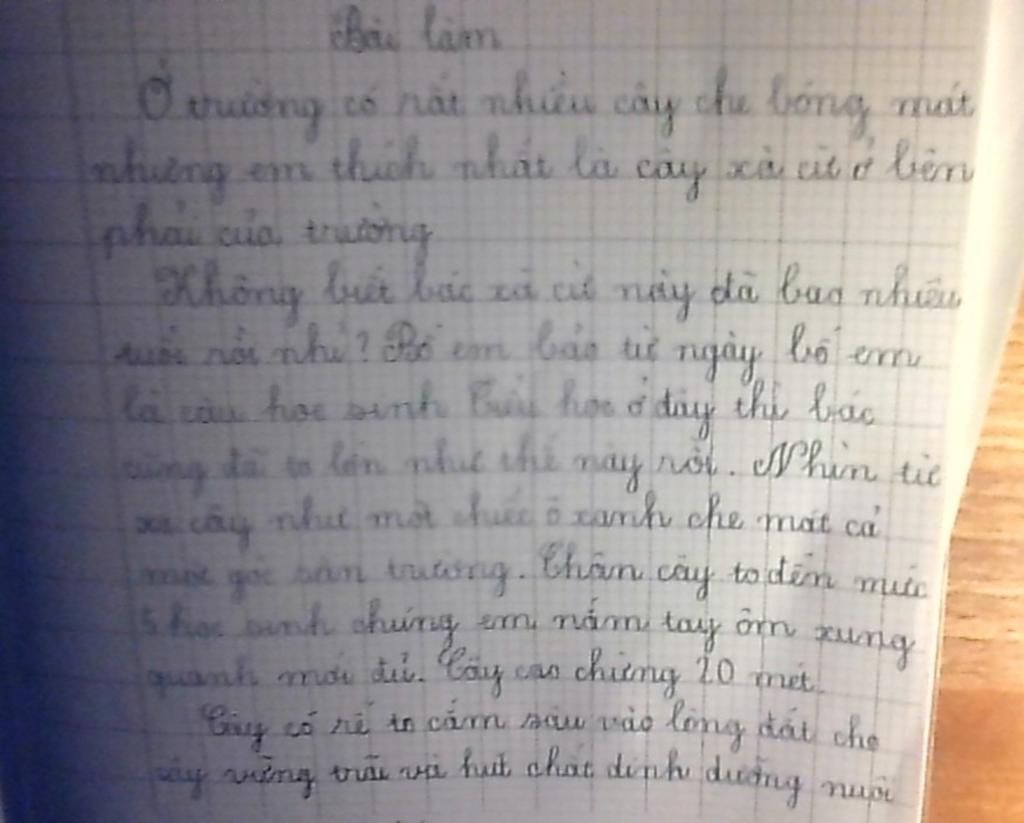 Bài làm
Ở trường có rất nhiều cây che bóng mát
nhưng em thích nhất là cây xà cừ ở bên
phải của trường
Không biết bác xà cừ này đã bao nhiêu
tuổi rồi nhỉ? Bố em bảo từ ngày bố em
là cậu học sinh Tiểu học ở đây thì bác
cũng đã to lớn như thế này rồi. Nhìn từ
xa cây như một chiếc ô xanh che mát cả
một góc sân trường. Thân cây to đến mức
5 học sinh chúng em nắm tay ôm xung
quanh mới đủ. Cây cao chừng 20 mét.
Cây có rễ to cắm sâu vào lòng đất cho
cây vững trãi và hút chất dinh dưỡng nuôi